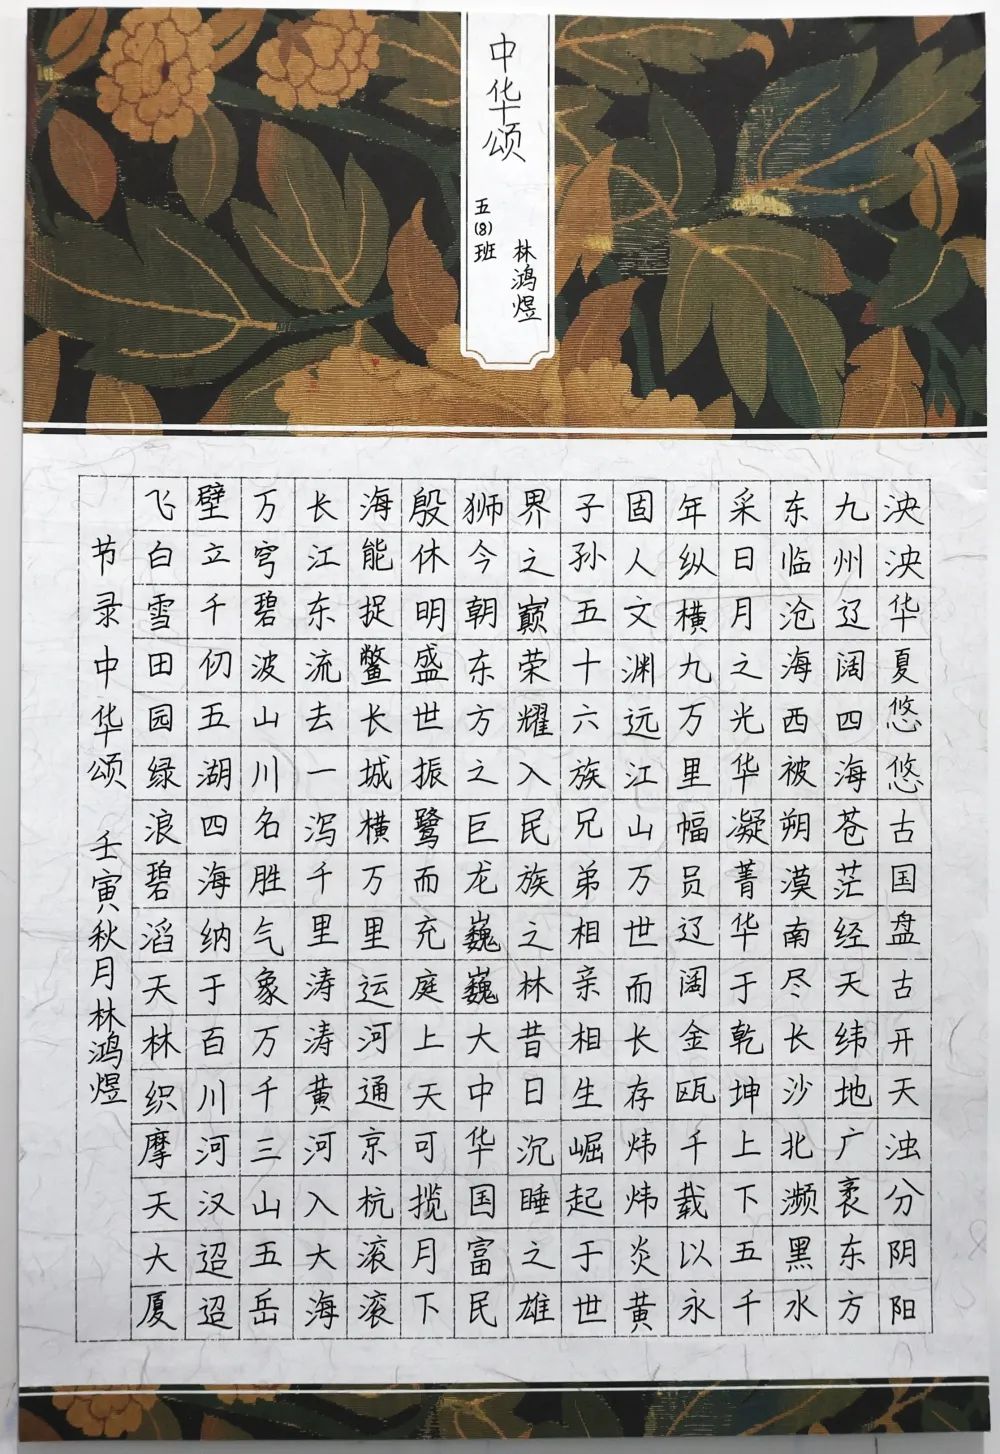 中华颂
五(8)班
林鸿煜
泱泱华夏悠悠古国盘古开天浊分阴阳
九州辽阔四海苍茫经天纬地广袤东方
东临沧海西被朔漠南尽长沙北濒黑水
采日月之光华凝菁华于乾坤上下五千
年纵横九万里幅员辽阔金瓯千载以永
固人文渊远江山万世而长存炜炜炎黄
子孙五十六族兄弟相亲相生崛起于世
界之巅荣耀入民族之林昔日沉睡之雄
狮今朝东方之巨龙巍巍大中华国富民
殷休明盛世振鹭而充庭上天可揽月下
海能捉鳖长城横万里运河通京杭滚滚
长江东流去一泻千里涛涛黄河入大海
万穹碧波山川名胜气象万千三山五岳
壁立千仞五湖四海纳于百川河汉迢迢
飞白雪田园绿浪碧滔天林织摩天大厦
节录中华颂 壬寅秋月林鸿煜